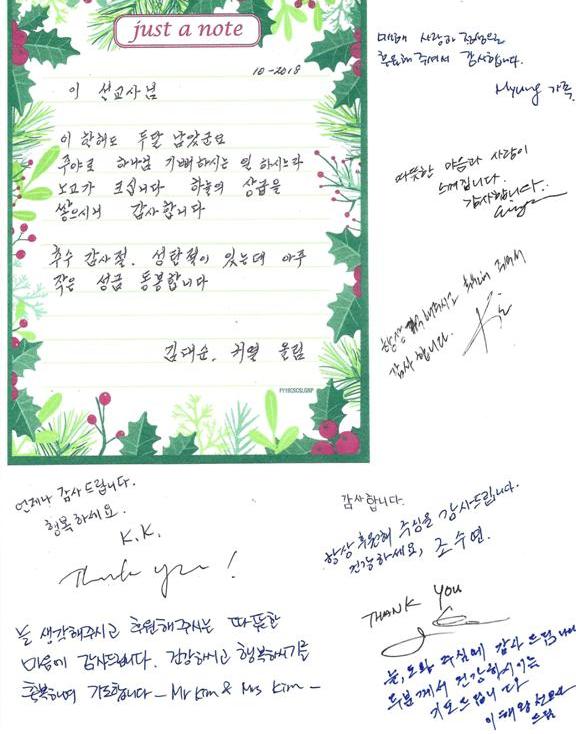 just a note
10-2018
이 선교사님
이 한해도 두달 남았군요
주야로 하나님 기뻐하시는 일 하시느라
노고가 크십니다 하늘의 상급을
쌓으시니 감사합니다
추수 감사절, 성탄절이 있는데 아주
작은 성금 동봉합니다
김대순, 귀열 올림
FY18CSCSLGNP
사랑과 정성으로
후원해 주셔서 감사합니다.
Myung 가족.
따뜻한 마음과 사랑이
느껴집니다.
감사합니다.
항상 해 주셔서
감사합니다.
언제나 감사드립니다.
행복하세요.
K.K.
Thank you!
늘 생각해주시고 후원해주시는 따뜻한
마음에 감사드립니다. 건강하시고 행복하시기를
축복하며 기도합니다 - Mr Kim & Mrs Kim -
감사합니다.
항상 후원해 주심을 감사드립니다.
건강하세요, 조수연.
THANK YOU
늘, 도와 주심에 감사 드립니다
두분께서 건강하시기를
기도드립니다
드림